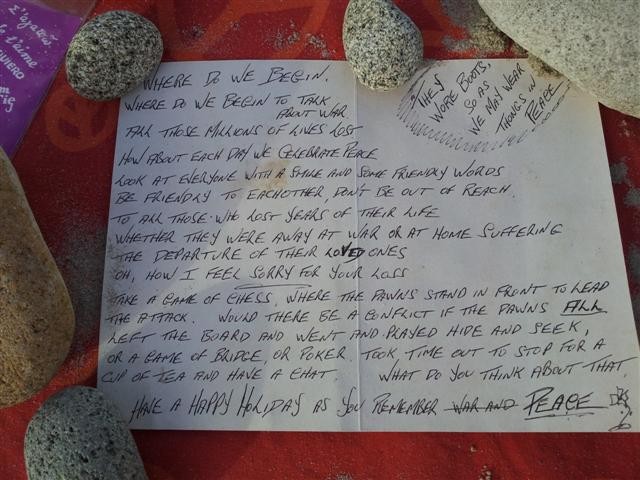 Σ'αγαπώ
t'aime
QUIERO
WHERE DO WE BEGIN.
WHERE DO WE BEGIN TO TALK
ABOUT WAR
ALL THOSE MILLIONS OF LIVES LOST
HOW ABOUT EACH DAY WE CELEBRATE PEACE
LOOK AT EVERYONE WITH A SMILE AND SOME FRIENDLY WORDS
BE FRIENDLY TO EACHOTHER, DON'T BE OUT OF REACH.
TO ALL THOSE WHO LOST YEARS OF THEIR LIFE
WHETHER THEY WERE AWAY AT WAR OR AT HOME SUFFERING
THE DEPARTURE OF THEIR LOVED ONES
OH, HOW I FEEL SORRY FOR YOUR LOSS
TAKE A GAME OF CHESS, WHERE THE PAWNS STAND IN FRONT TO LEAD
THE ATTACK. WOULD THERE BE A CONFLICT IF THE PAWNS ALL
LEFT THE BOARD AND WENT AND PLAYED HIDE AND SEEK,
OR A GAME OF BRIDGE, OR POKER. TOOK, TIME OUT TO STOP FOR A
CUP OF TEA AND HAVE A CHAT WHAT DO YOU THINK ABOUT THAT.
HAVE A HAPPY HOLIDAY AS YOU REMEMBER WAR AND PEACE
THEY
WORE BOOTS,
SO AS
WE MAY WEAR
THONG'S IN
PEACE